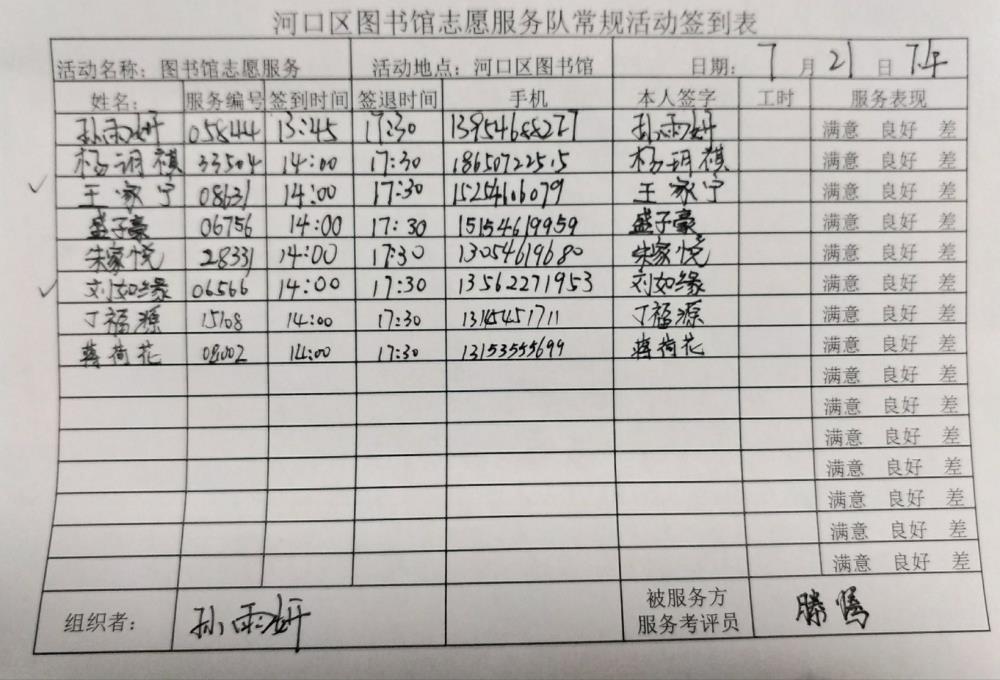 河口区图书馆志愿服务队常规活动签到表
活动名称：图书馆志愿服务 活动地点：河口区图书馆 日期：7月21日 下午
姓名： 服务编号 签到时间 签退时间 手机 本人签字 工时 服务表现
孙雨妍 05844 13:45 17:30 13954688277 孙雨妍 满意 良好 差
杨玥祺 33504 14:00 17:30 18650722515 杨玥祺 满意 良好 差
王家宁 08631 14:00 17:30 15254606079 王家宁 满意 良好 差
盛子豪 06756 14:00 17:30 15154619959 盛子豪 满意 良好 差
朱家悦 28331 14:00 17:30 13054619680 朱家悦 满意 良好 差
刘如缘 06566 14:00 17:30 13562271953 刘如缘 满意 良好 差
丁福源 15108 14:00 17:30 13145451711 丁福源 满意 良好 差
蒋荷花 08002 14:00 17:30 13153555699 蒋荷花 满意 良好 差
满意 良好 差
满意 良好 差
满意 良好 差
满意 良好 差
满意 良好 差
满意 良好 差
满意 良好 差
组织者： 孙雨妍 被服务方
服务考评员 滕